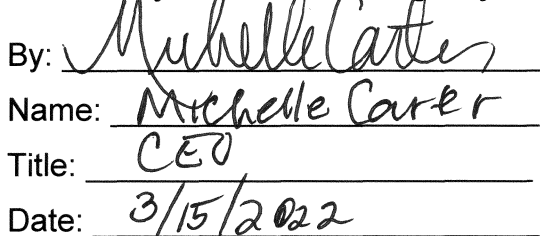 By: Michelle Carter
Name: Michelle Carter
Title: CEO
Date: 3/15/2022